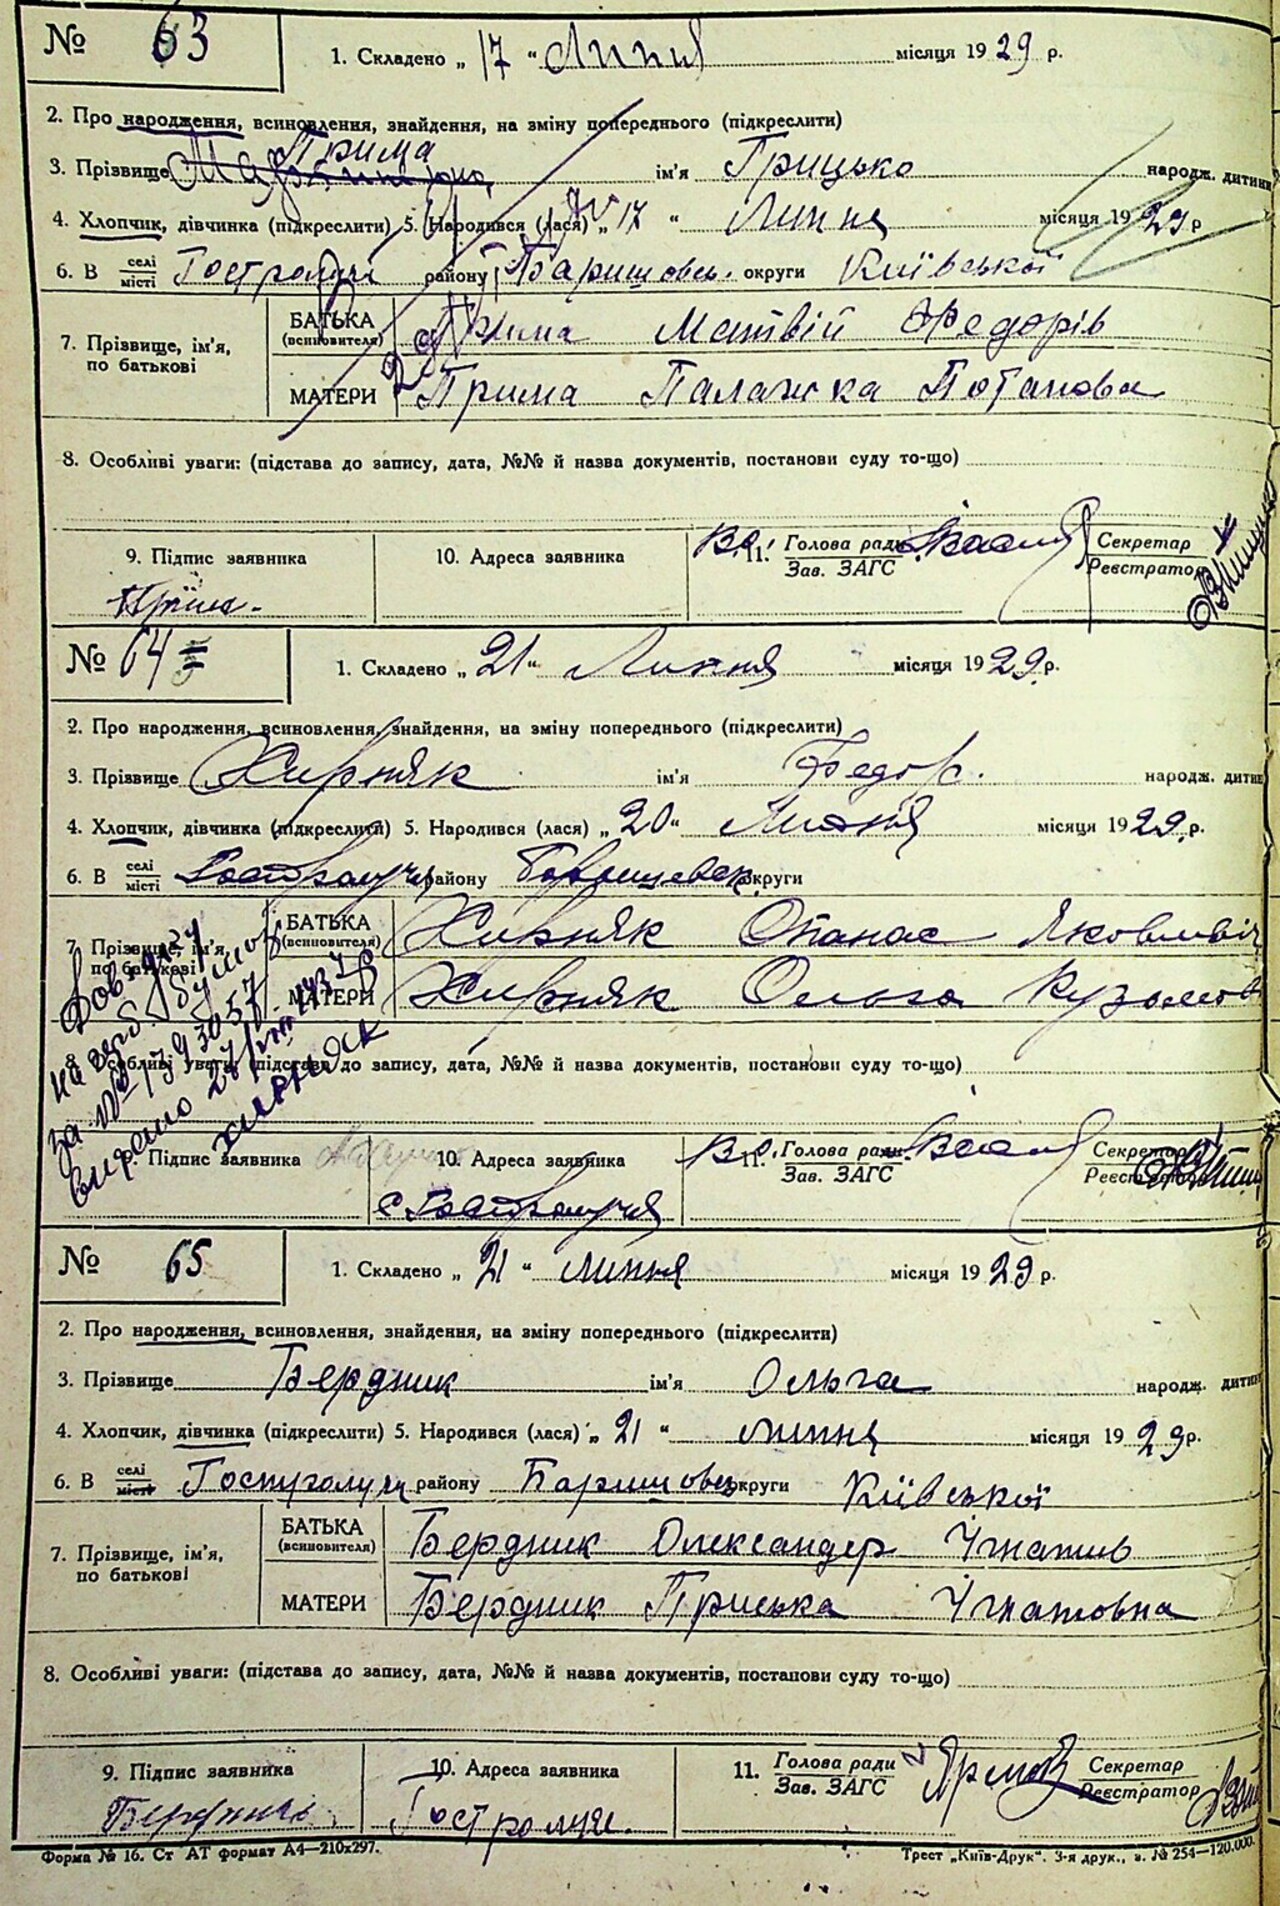 № 63 1. Складено „ 17 “ Липня місяця 1929 р.
2. Про народження, всиновлення, знайдення, на зміну попереднього (підкреслити)
Прима
3. Прізвище ім'я Грицько народж. дитини
4. Хлопчик, дівчинка (підкреслити) 5. Народився (лася) „ 17 “ Липня місяця 1929 р
6. В селі/місті Гостролучі району Баришовськ. округи Київської
7. Прізвище, ім'я, по батькові БАТЬКА (всиновителя) Прима Матвій Федорів
МАТЕРИ Прима Палажка Потапова
8. Особливі уваги: (підстава до запису, дата, №№ й назва документів, постанови суду то-що)
9. Підпис заявника 10. Адреса заявника 11. Голова ради Зав. ЗАГС Секретар Реєстратор
№ 64 1. Складено „ 21 “ Липня місяця 1929 р.
2. Про народження, всиновлення, знайдення, на зміну попереднього (підкреслити)
3. Прізвище Хирняк ім'я Федор. народж. дитини
4. Хлопчик, дівчинка (підкреслити) 5. Народився (лася) „ 20 “ Липня місяця 1929 р.
6. В селі/місті Гостролуччя району округи
7. Прізвище, ім'я, по батькові БАТЬКА (всиновителя) Хирняк Опанас Яковлевіч
МАТЕРИ Хирняк Ольга Кузьмов
8. Особливі уваги: (підстава до запису, дата, №№ й назва документів, постанови суду то-що)
9. Підпис заявника 10. Адреса заявника 11. Голова ради Зав. ЗАГС Секретар Реєстратор
с. Гостролуччя
№ 65 1. Складено „ 21 “ липня місяця 1929 р.
2. Про народження, всиновлення, знайдення, на зміну попереднього (підкреслити)
3. Прізвище Бердник ім'я Ольга народж. дитини
4. Хлопчик, дівчинка (підкреслити) 5. Народився (лася) „ 21 “ липня місяця 1929 р.
6. В селі/місті Гостролучи району Баришовськ округи Київської
7. Прізвище, ім'я, по батькові БАТЬКА (всиновителя) Бердник Олександер Ігнатив
МАТЕРИ Бердник Приська Ігнатовна
8. Особливі уваги: (підстава до запису, дата, №№ й назва документів, постанови суду то-що)
9. Підпис заявника 10. Адреса заявника 11. Голова ради Зав. ЗАГС Секретар Реєстратор
Бердник Гостролучи.
Форма № 16. Ст АТ формат А4—210х297. Трест „Київ-Друк“. 3-я друк., з. № 254—120.000.